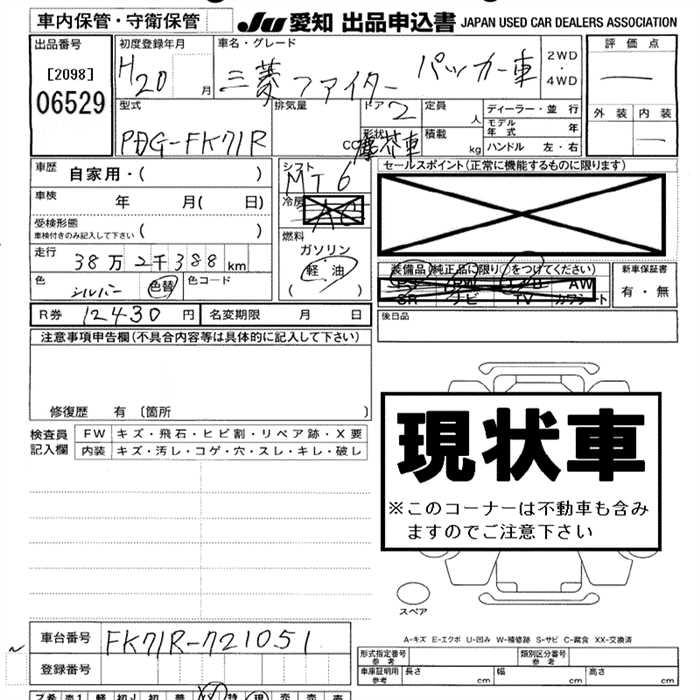 車内保管・守衛保管 JU 愛知 出品申込書 JAPAN USED CAR DEALERS ASSOCIATION
出品番号 初度登録年月 車名・グレード 2WD 評価点
[2098] H20 月 三菱ファイター パッカー車 ・ —
06529 4WD
型式 排気量 ドア 2 定員 ディーラー・並行 外装 内装
人 モデル年式 年 —
PDG-FK71R cc 形状 塵芥車 積載 kg ハンドル 左・右
車歴 自家用・( ) シフト MT6 セールスポイント(正常に機能するものに限ります)
車検 年 月( 日) 冷房 AC
受検形態 ( ) 燃料
車検付きのみ記入して下さい ガソリン
走行 38万2千388km 軽油 装備品(純正品に限り○をつけてください) 新車保証書
色 シルバー 色替 色コード ( ) PS PW エアB AW 有・無
SR ナビ TV カワシート
R券 12430円 名変期限 月 日 後日品
注意事項申告欄(不具合内容等は具体的に記入して下さい)
修復歴 有〔箇所 〕
検査員 FW キズ・飛石・ヒビ割・リペア跡・X要
記入欄 内装 キズ・汚レ・コゲ・穴・スレ・キレ・破レ
現状車
※このコーナーは不動車も含み
ますのでご注意下さい
スペア
車台番号 FK71R-721051
A-キズ E-エクボ U-凹み W-補修跡 S-サビ C-腐食 XX-交換済
登録番号 形式指定番号 参考 類別区分番号 参考
車庫証明用 参考 長さ cm 幅 cm 高さ cm